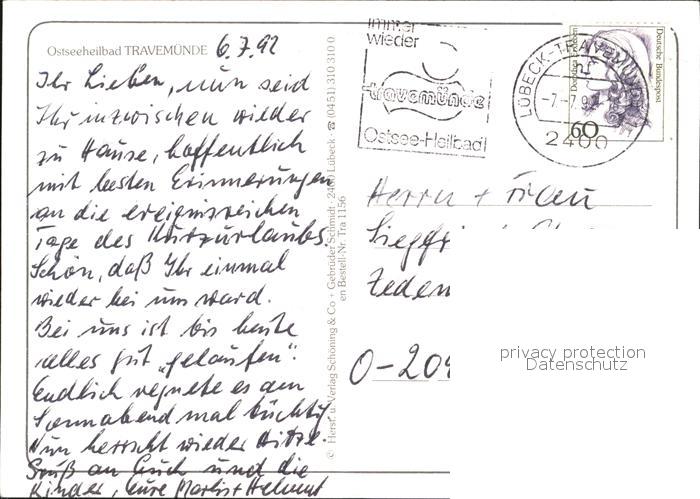 Ostseeheilbad TRAVEMÜNDE 6.7.92
Ihr Lieben, nun seid
Ihr inzwischen wieder
zu Hause, hoffentlich
mit besten Erinnerungen
an die ereignisreichen
Tage des Kurzurlaubs.
Schön, daß Ihr einmal
wieder bei uns ward.
Bei uns ist bis heute
alles gut „gelaufen".
Endlich regnete es am
Sonnabend mal tüchtig.
Nun herrscht wieder Hitze.
Gruß an Euch und die
Kinder, Eure Marlis + Helmut
© Herst. u. Verlag Schöning & Co + Gebrüder Schmidt · 2400 Lübeck ☎ (0451) 310 310 0
en Bestell-Nr. Tra 1156
immer
wieder
travemünde
Ostsee-Heilbad
LÜBECK-TRAVEMÜNDE
-7.-7.92
2400
Deutsche Bundespost
60
Herrn + Frau
Siegfr
Zeden
O-209
privacy protection
Datenschutz